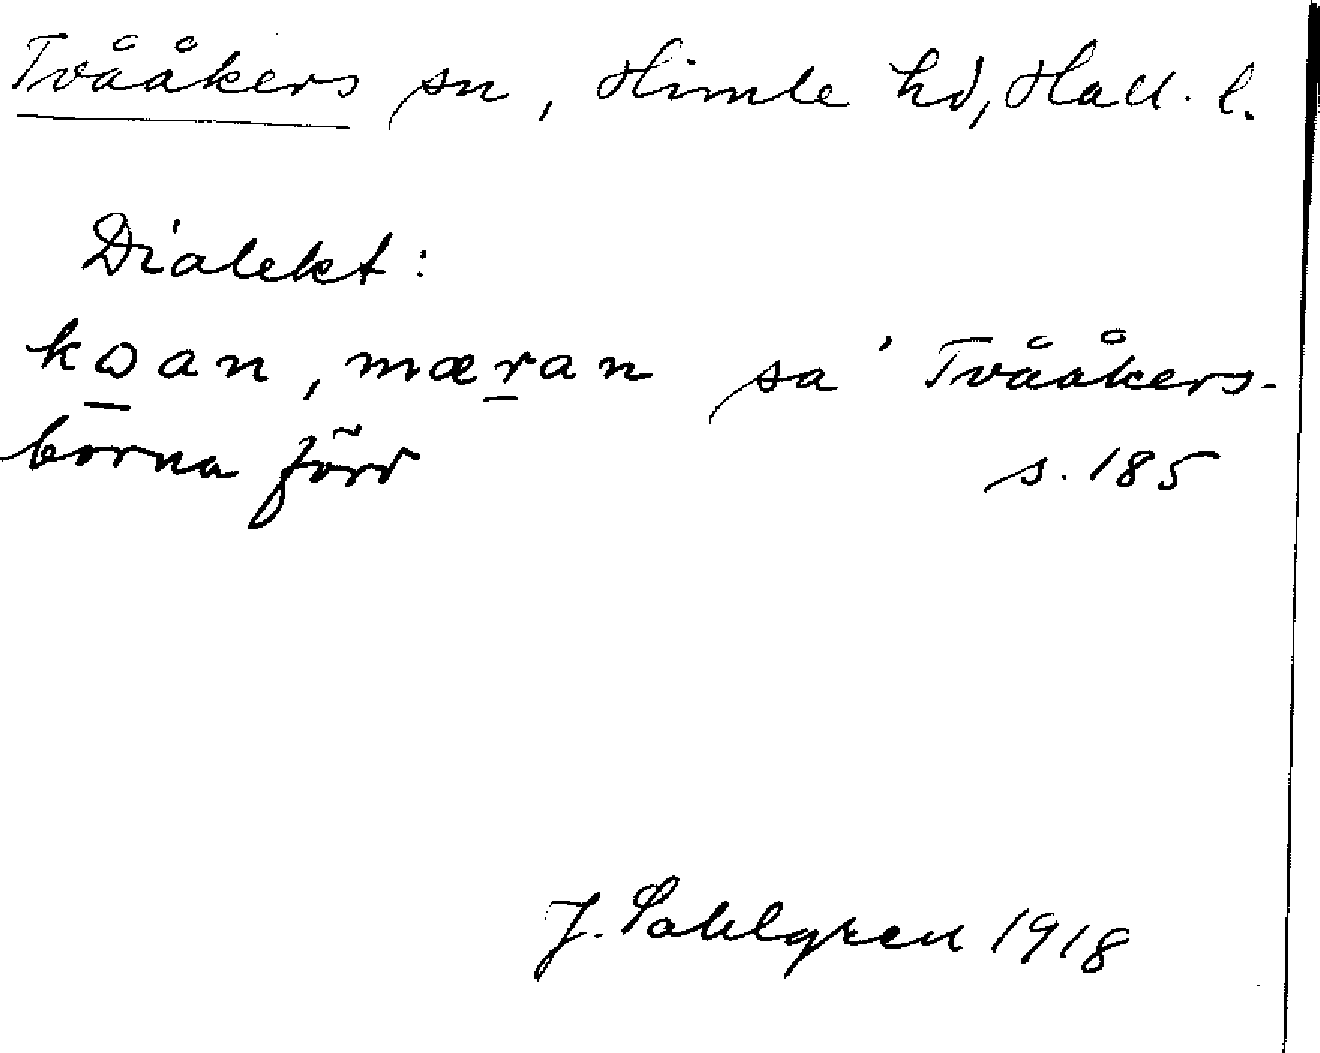 Tvååkers sn, Himle hd, Hall. l.
Dialekt:
koan, mæran sa' Tvååkers-
borna förr s. 185
J. Sahlgren 1918